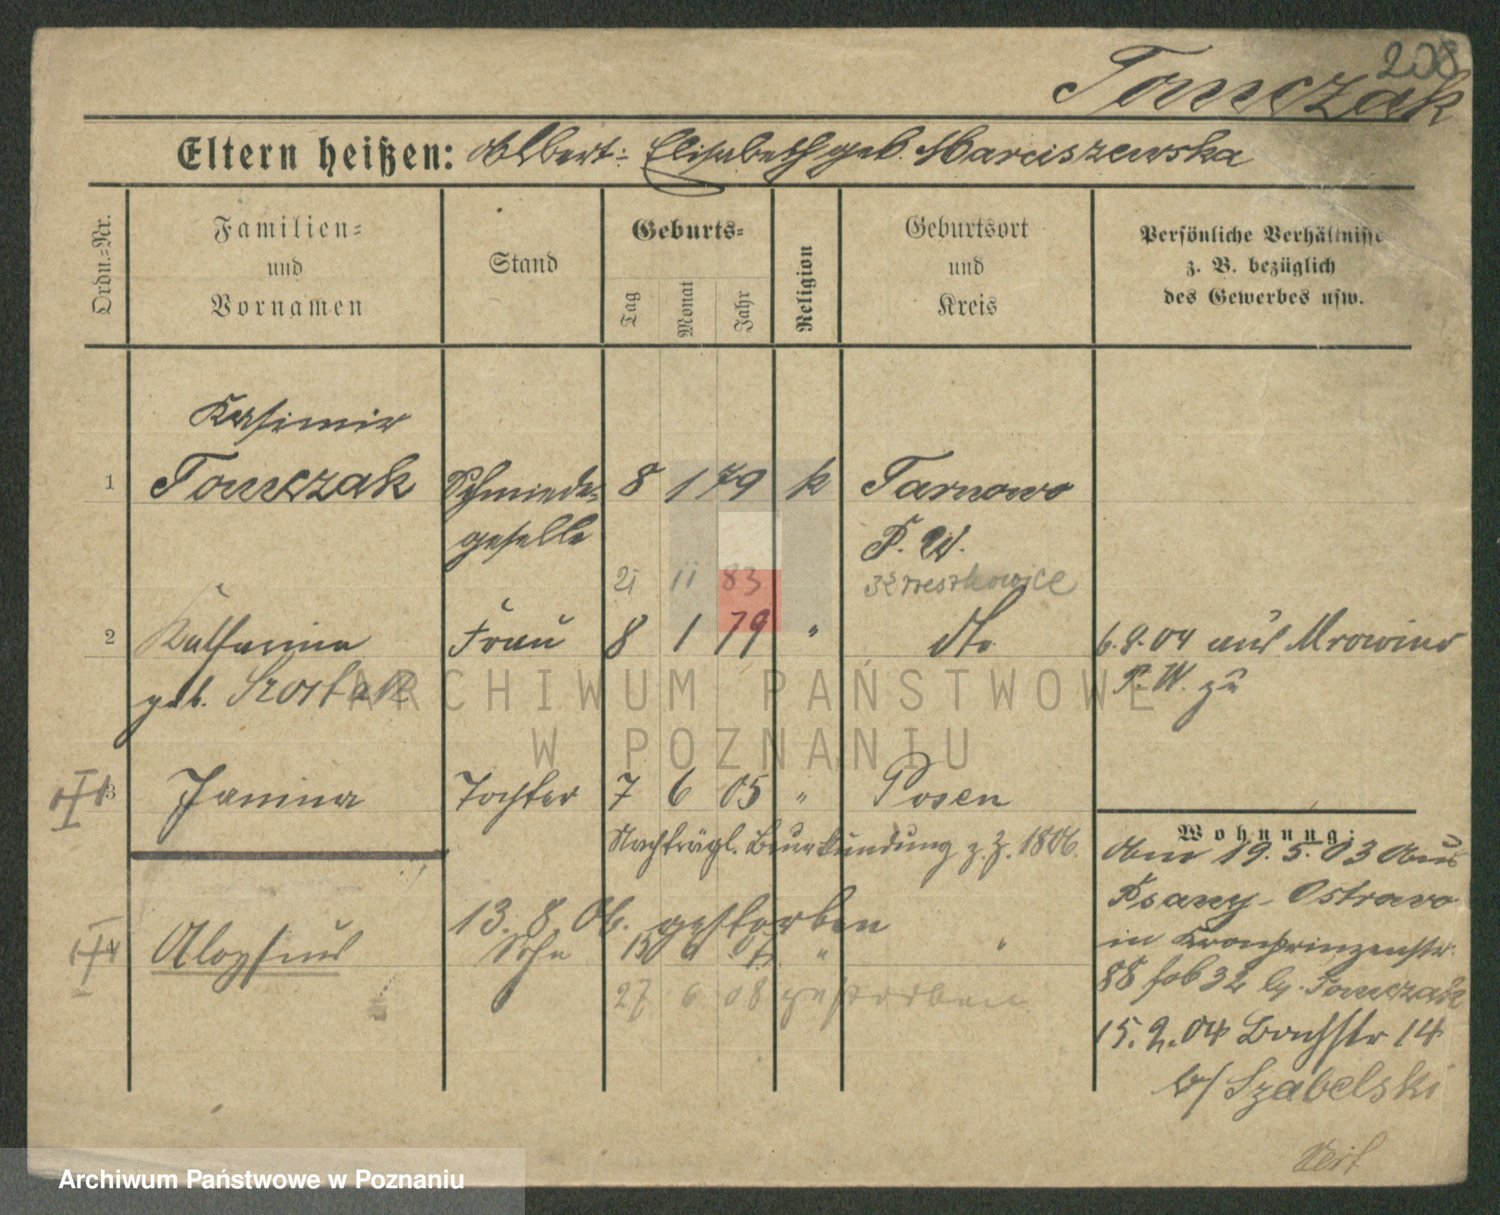 208
Tomczak
Eltern heißen: Albert - Elisabeth geb. Marciszewska
Ordn.-Nr.
Familien- und Vornamen
Stand
Geburts-
Tag
Monat
Jahr
Religion
Geburtsort und Kreis
Persönliche Verhältnisse
z. B. bezüglich
des Gewerbes usw.
Kasimir
1 Tomczak Schmiede- 8 1 79 k Tarnowo
geselle P. W.
21 11 83 Krzeszkowice
2 Katharina Frau 8 1 79 " dto. 6.9.04 aus Mrowino
geb. Szostak P.W. zu
ARCHIWUM PAŃSTWOWE
W POZNANIU
3 Janina Tochter 7 6 05 " Posen
Nachträgl. Beurkundung z. Z. 1806.
13. 8. 06. gestorben
4 Aloysius Sohn 15 6 07 " "
27 6 08 gestorben
Wohnung:
Am 19.5.03 aus
Ostrowo
in Kronprinzenstr.
88 b/ Tomczak
15.2.04 Bachstr 14
b/ Szabelski
Archiwum Państwowe w Poznaniu